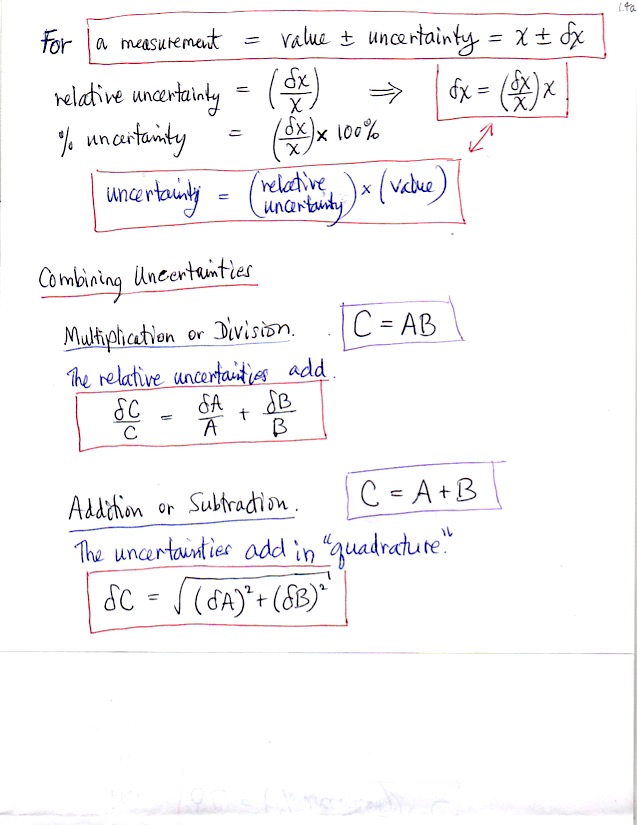 1.4a
For a measurement = value ± uncertainty = x ± δx
relative uncertainty = (δx/x) ⟹ δx = (δx/x) x
% uncertainty = (δx/x) × 100%
uncertainty = (relative uncertainty) × (value)
Combining Uncertainties
Multiplication or Division. C = AB
The relative uncertainties add.
δC/C = δA/A + δB/B
Addition or Subtraction. C = A + B
The uncertainties add in "quadrature."
δC = √((δA)² + (δB)²)